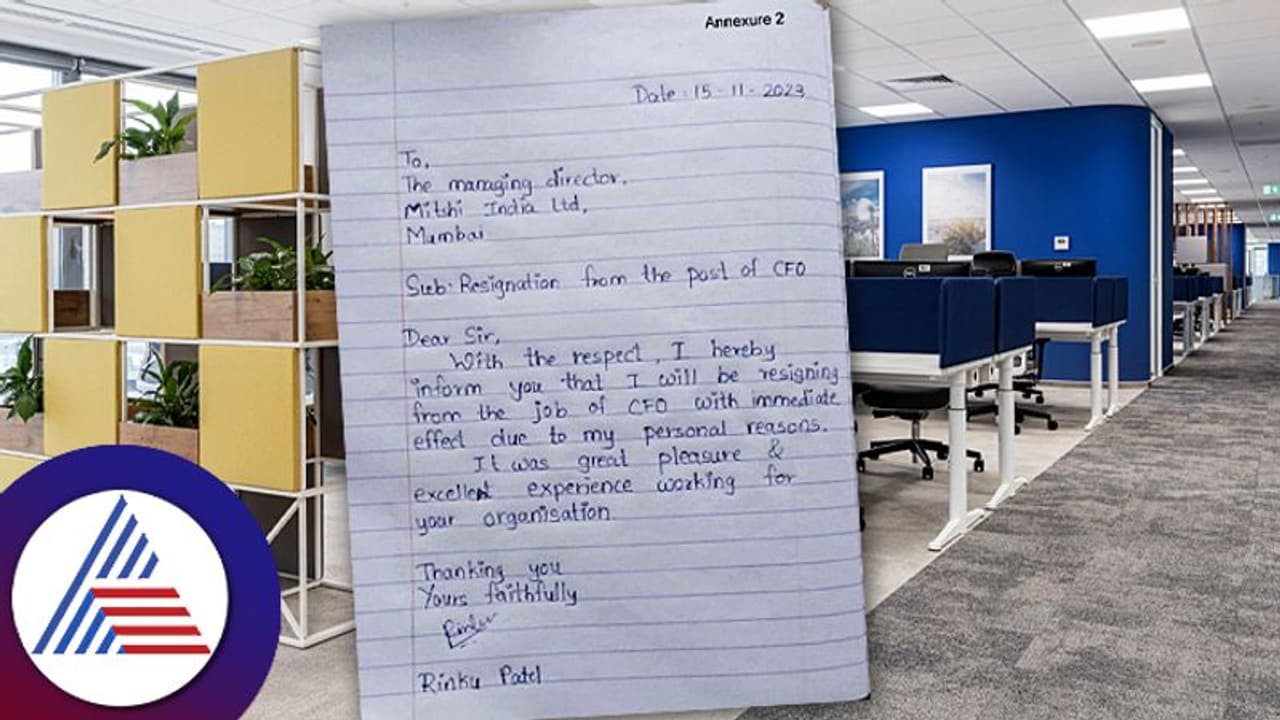 Annexure 2
Date : 15 - 11 - 2023
To,
The managing director,
Mitshi India Ltd,
Mumbai
Sub: Resignation from the post of CFO
Dear Sir,
With the respect, I hereby
inform you that I will be resigning
from the job of CFO with immediate
effect due to my personal reasons.
It was great pleasure &
excellent experience working for
your organisation.
Thanking you
Yours faithfully
Rinku
Rinku Patel